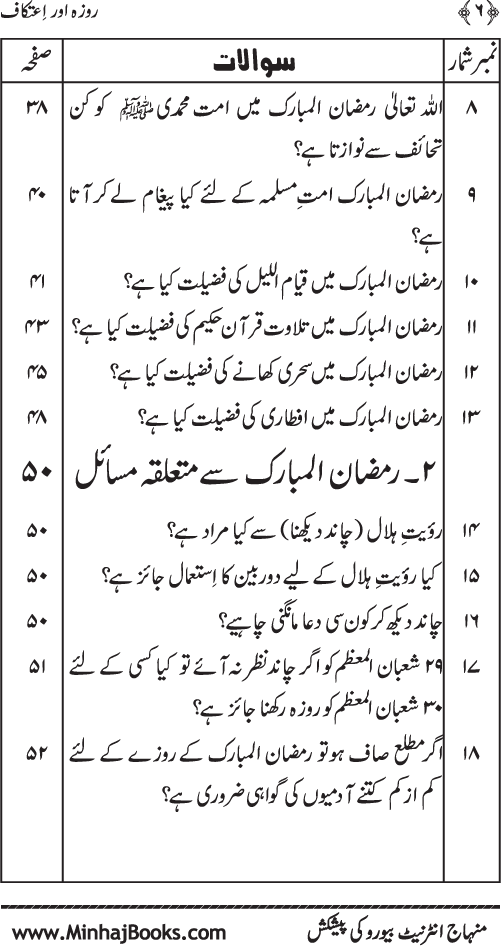 ﴿۶﴾ روزہ اور اِعتکاف
نمبر شمار سوالات صفحہ
۸ اللہ تعالیٰ رمضان المبارک میں امت محمدی ﷺ کو کن ۳۸
تحائف سے نوازتا ہے؟
۹ رمضان المبارک امتِ مسلمہ کے لئے کیا پیغام لے کر آتا ۴۰
ہے؟
۱۰ رمضان المبارک میں قیام اللیل کی فضیلت کیا ہے؟ ۴۱
۱۱ رمضان المبارک میں تلاوت قرآن حکیم کی فضیلت کیا ہے؟ ۴۳
۱۲ رمضان المبارک میں سحری کھانے کی فضیلت کیا ہے؟ ۴۵
۱۳ رمضان المبارک میں افطاری کی فضیلت کیا ہے؟ ۴۸
۲۔ رمضان المبارک سے متعلقہ مسائل ۵۰
۱۴ رؤیتِ ہلال (چاند دیکھنا) سے کیا مراد ہے؟ ۵۰
۱۵ کیا رؤیتِ ہلال کے لیے دوربین کا اِستعمال جائز ہے؟ ۵۰
۱۶ چاند دیکھ کر کون سی دعا مانگنی چاہیے؟ ۵۰
۱۷ ۲۹ شعبان المعظم کو اگر چاند نظر نہ آئے تو کیا کسی کے لئے ۵۱
۳۰ شعبان المعظم کو روزہ رکھنا جائز ہے؟
۱۸ اگر مطلع صاف ہو تو رمضان المبارک کے روزے کے لئے ۵۲
کم از کم کتنے آدمیوں کی گواہی ضروری ہے؟
منہاج انٹرنیٹ بیورو کی پیشکش www.MinhajBooks.com